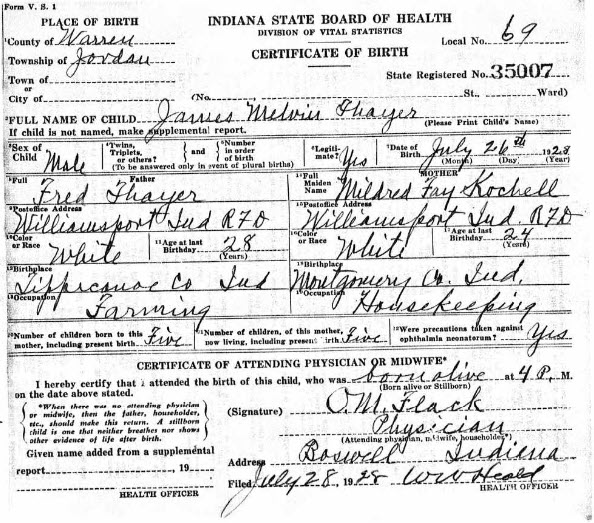 Form V. S. 1
PLACE OF BIRTH
INDIANA STATE BOARD OF HEALTH
DIVISION OF VITAL STATISTICS
1County of Warren
Local No. 69
CERTIFICATE OF BIRTH
Township of Jordan
Town of
State Registered No. 35007
or
City of (No. St., Ward)
2FULL NAME OF CHILD James Melvin Thayer (Please Print Child's Name)
If child is not named, make supplemental report.
3Sex of Child Male
4Twins, Triplets, or others? } and { 5Number in order of birth
(To be answered only in event of plural births)
6Legitimate? Yes
7Date of Birth July 26th 1928
(Month) (Day) (Year)
8Full Father
Fred Thayer
14Full Maiden Name MOTHER
Mildred Fay Kochell
9Postoffice Address
Williamsport Ind RFD
15Postoffice Address
Williamsport Ind. RFD
10Color or Race White
11Age at last Birthday 28 (Years)
16Color or Race White
17Age at last Birthday 24 (Years)
12Birthplace
Tippecanoe Co Ind
18Birthplace
Montgomery Co. Ind.
13Occupation
Farming
19Occupation
Housekeeping
20Number of children born to this mother, including present birth Five
21Number of children, of this mother, now living, including present birth Five
22Were precautions taken against ophthalmia neonatorum? Yes
CERTIFICATE OF ATTENDING PHYSICIAN OR MIDWIFE*
I hereby certify that I attended the birth of this child, who was born alive at 4 P. M.
on the date above stated. (Born alive or Stillborn)
*When there was no attending physician
or midwife, then the father, householder,
etc., should make this return. A stillborn
child is one that neither breathes nor shows
other evidence of life after birth.
(Signature) O. M. Flack
Physician
(Attending physician, midwife, householder*)
Given name added from a supplemental
report , 19
HEALTH OFFICER
Address Boswell Indiana
Filed July 28, 1928 WW Heald
HEALTH OFFICER